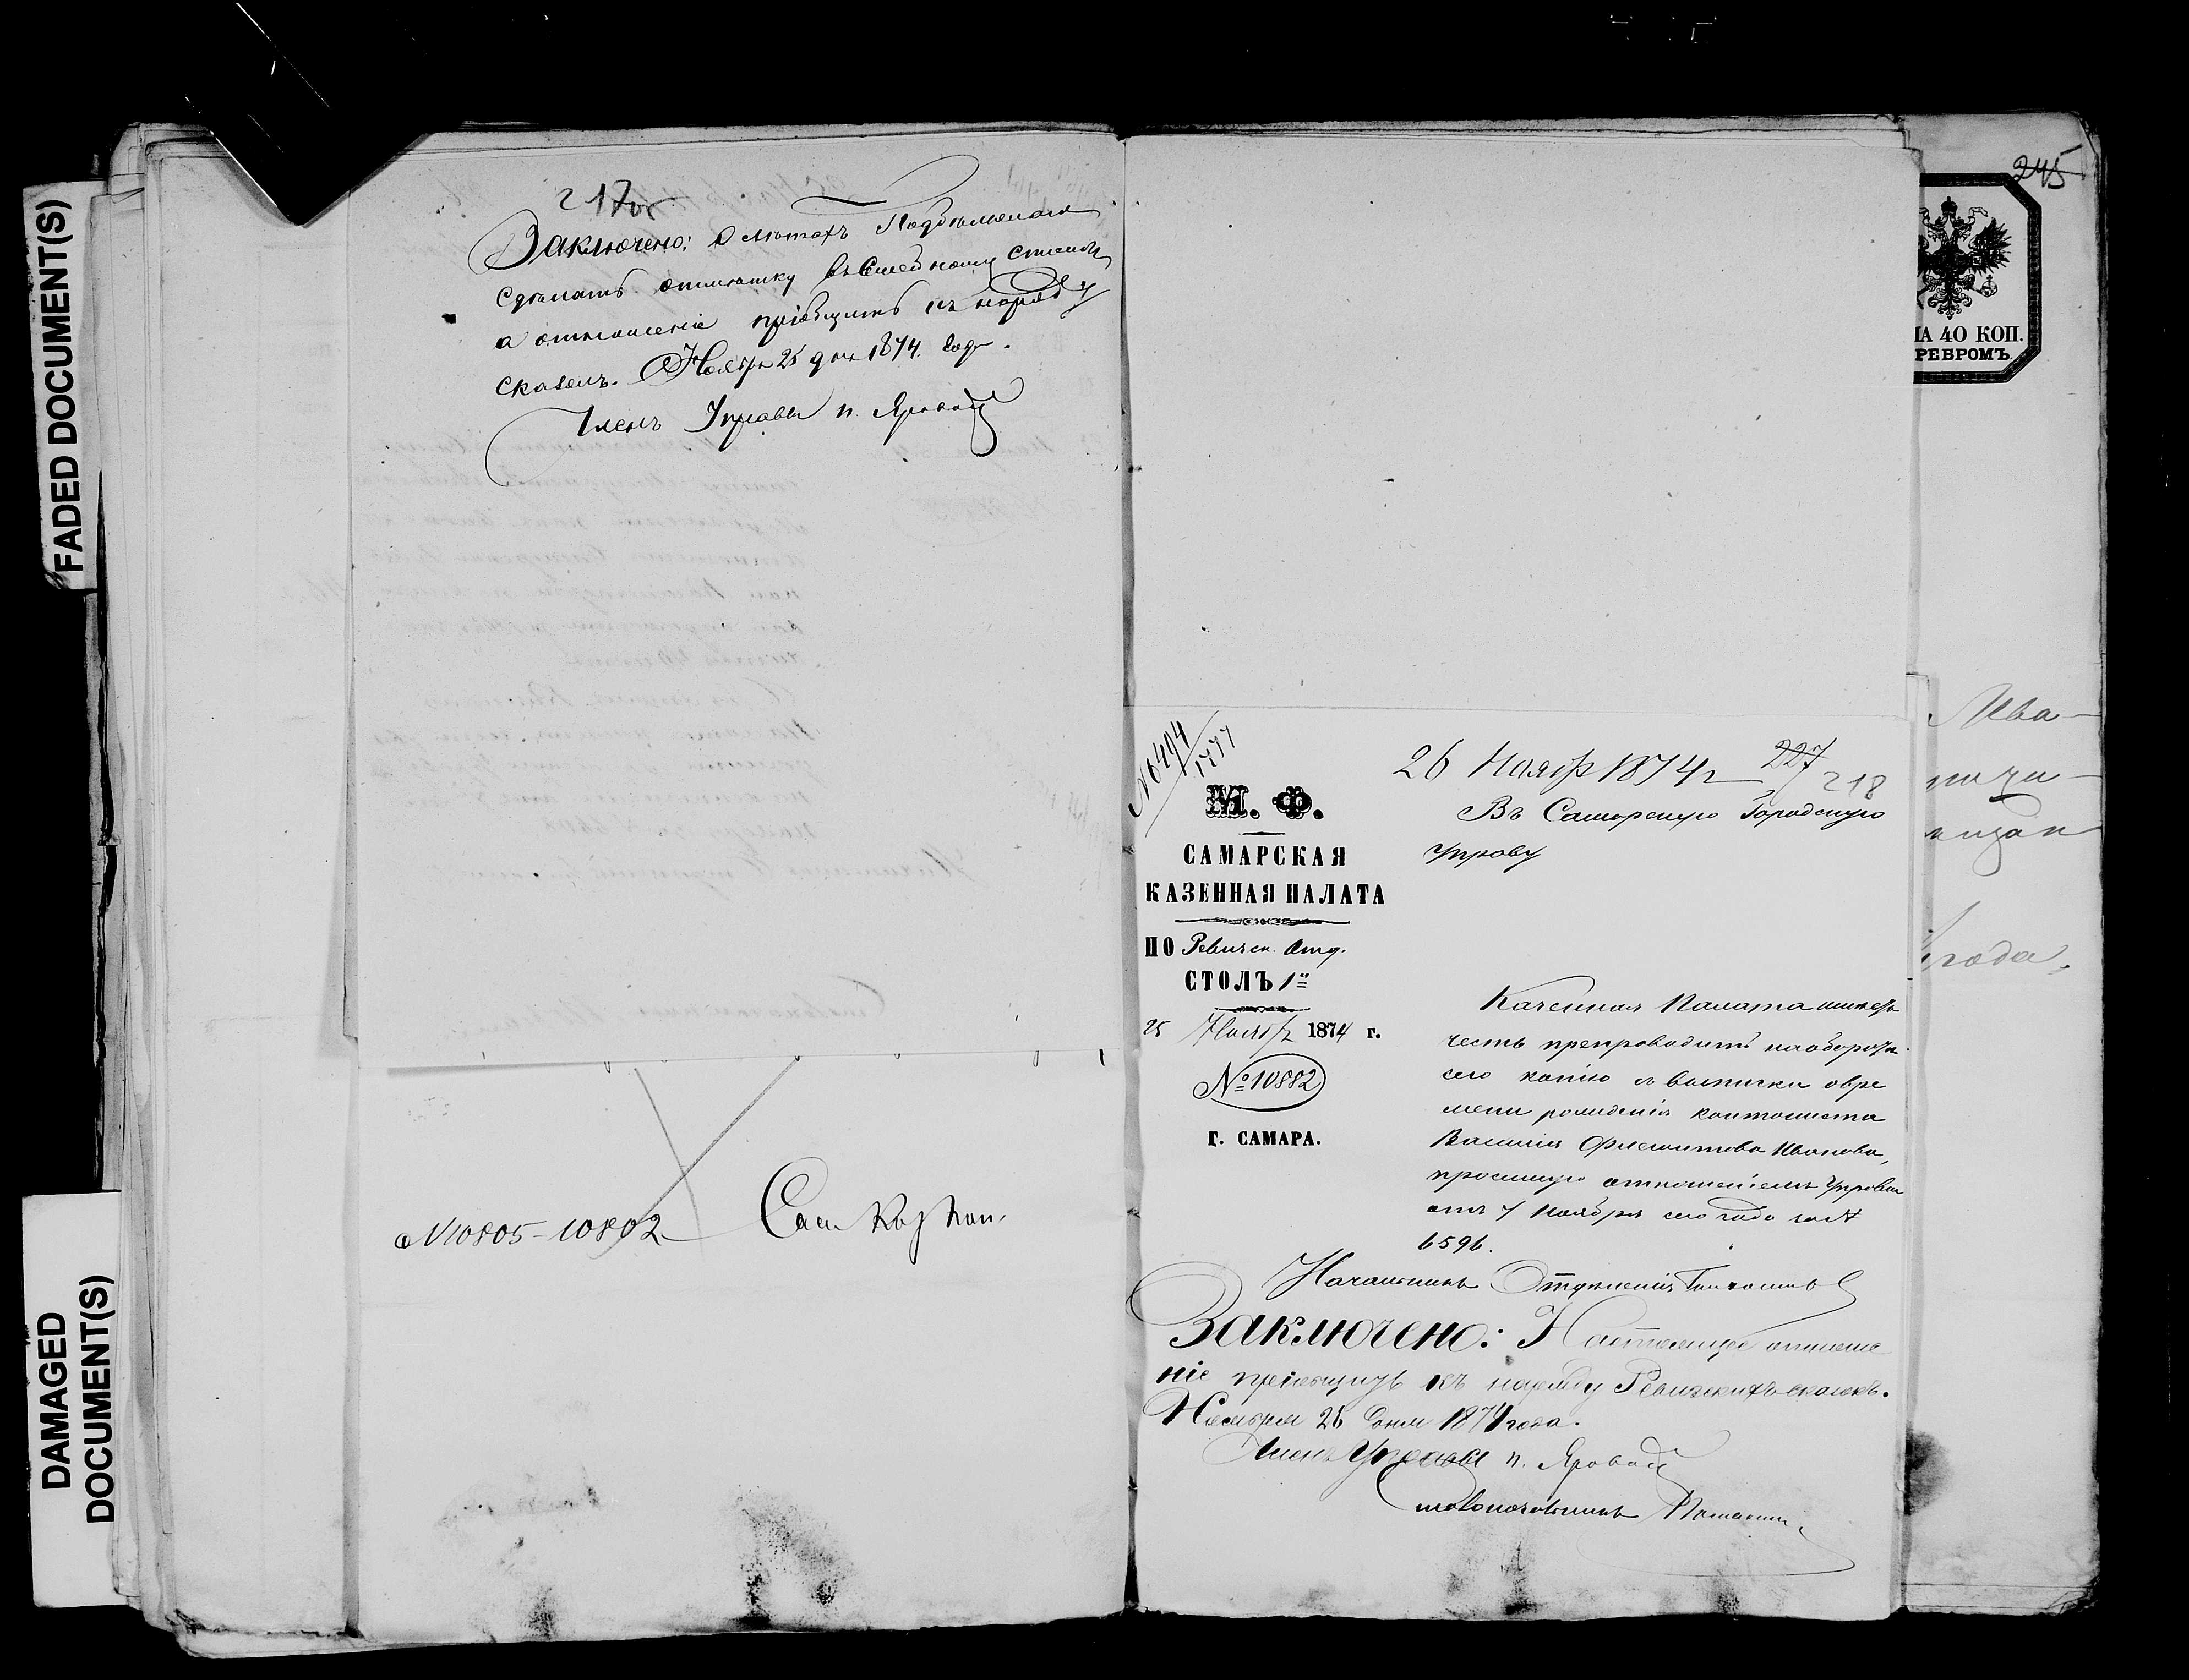 FADED DOCUMENT(S)
DAMAGED
DOCUMENT(S)
217об
Заключено: О лѣтахъ Подбѣльскаго
сдѣлать отмѣтку въ Семейномъ спискѣ,
а отношеніе пріобщить къ наряду
сказокъ. Ноября 25 дня 1874 года.
Членъ Управы П. Яровой
№10805-10802 Сам Каз Пал.
245
НА 40 КОП.
РЕБРОМЪ.
№6494
1777
26 Ноябр 1874 г
227
218
М. Ф.
САМАРСКАЯ
КАЗЕННАЯ ПАЛАТА
ПО Ревизск. Отд.
СТОЛЪ 1й
25 Ноября 1874 г.
№ 10882
Г. САМАРА.
Въ Самарскую Городскую
Управу
Казенная Палата имѣетъ
честь препроводить на оборотѣ
сего копію съ выписки о вре
мени рожденія кантониста
Василія Филемонтова Иванова,
просимую отношеніемъ Управы
отъ 7 Ноября сего года за №
6596.
Начальникъ Отдѣленія
Заключено: Настоящее отноше
ніе пріобщить къ наряду Ревизскихъ сказокъ.
Ноября 26 дня 1874 года.
Членъ Управы П. Яровой
Столоначальникъ
года.